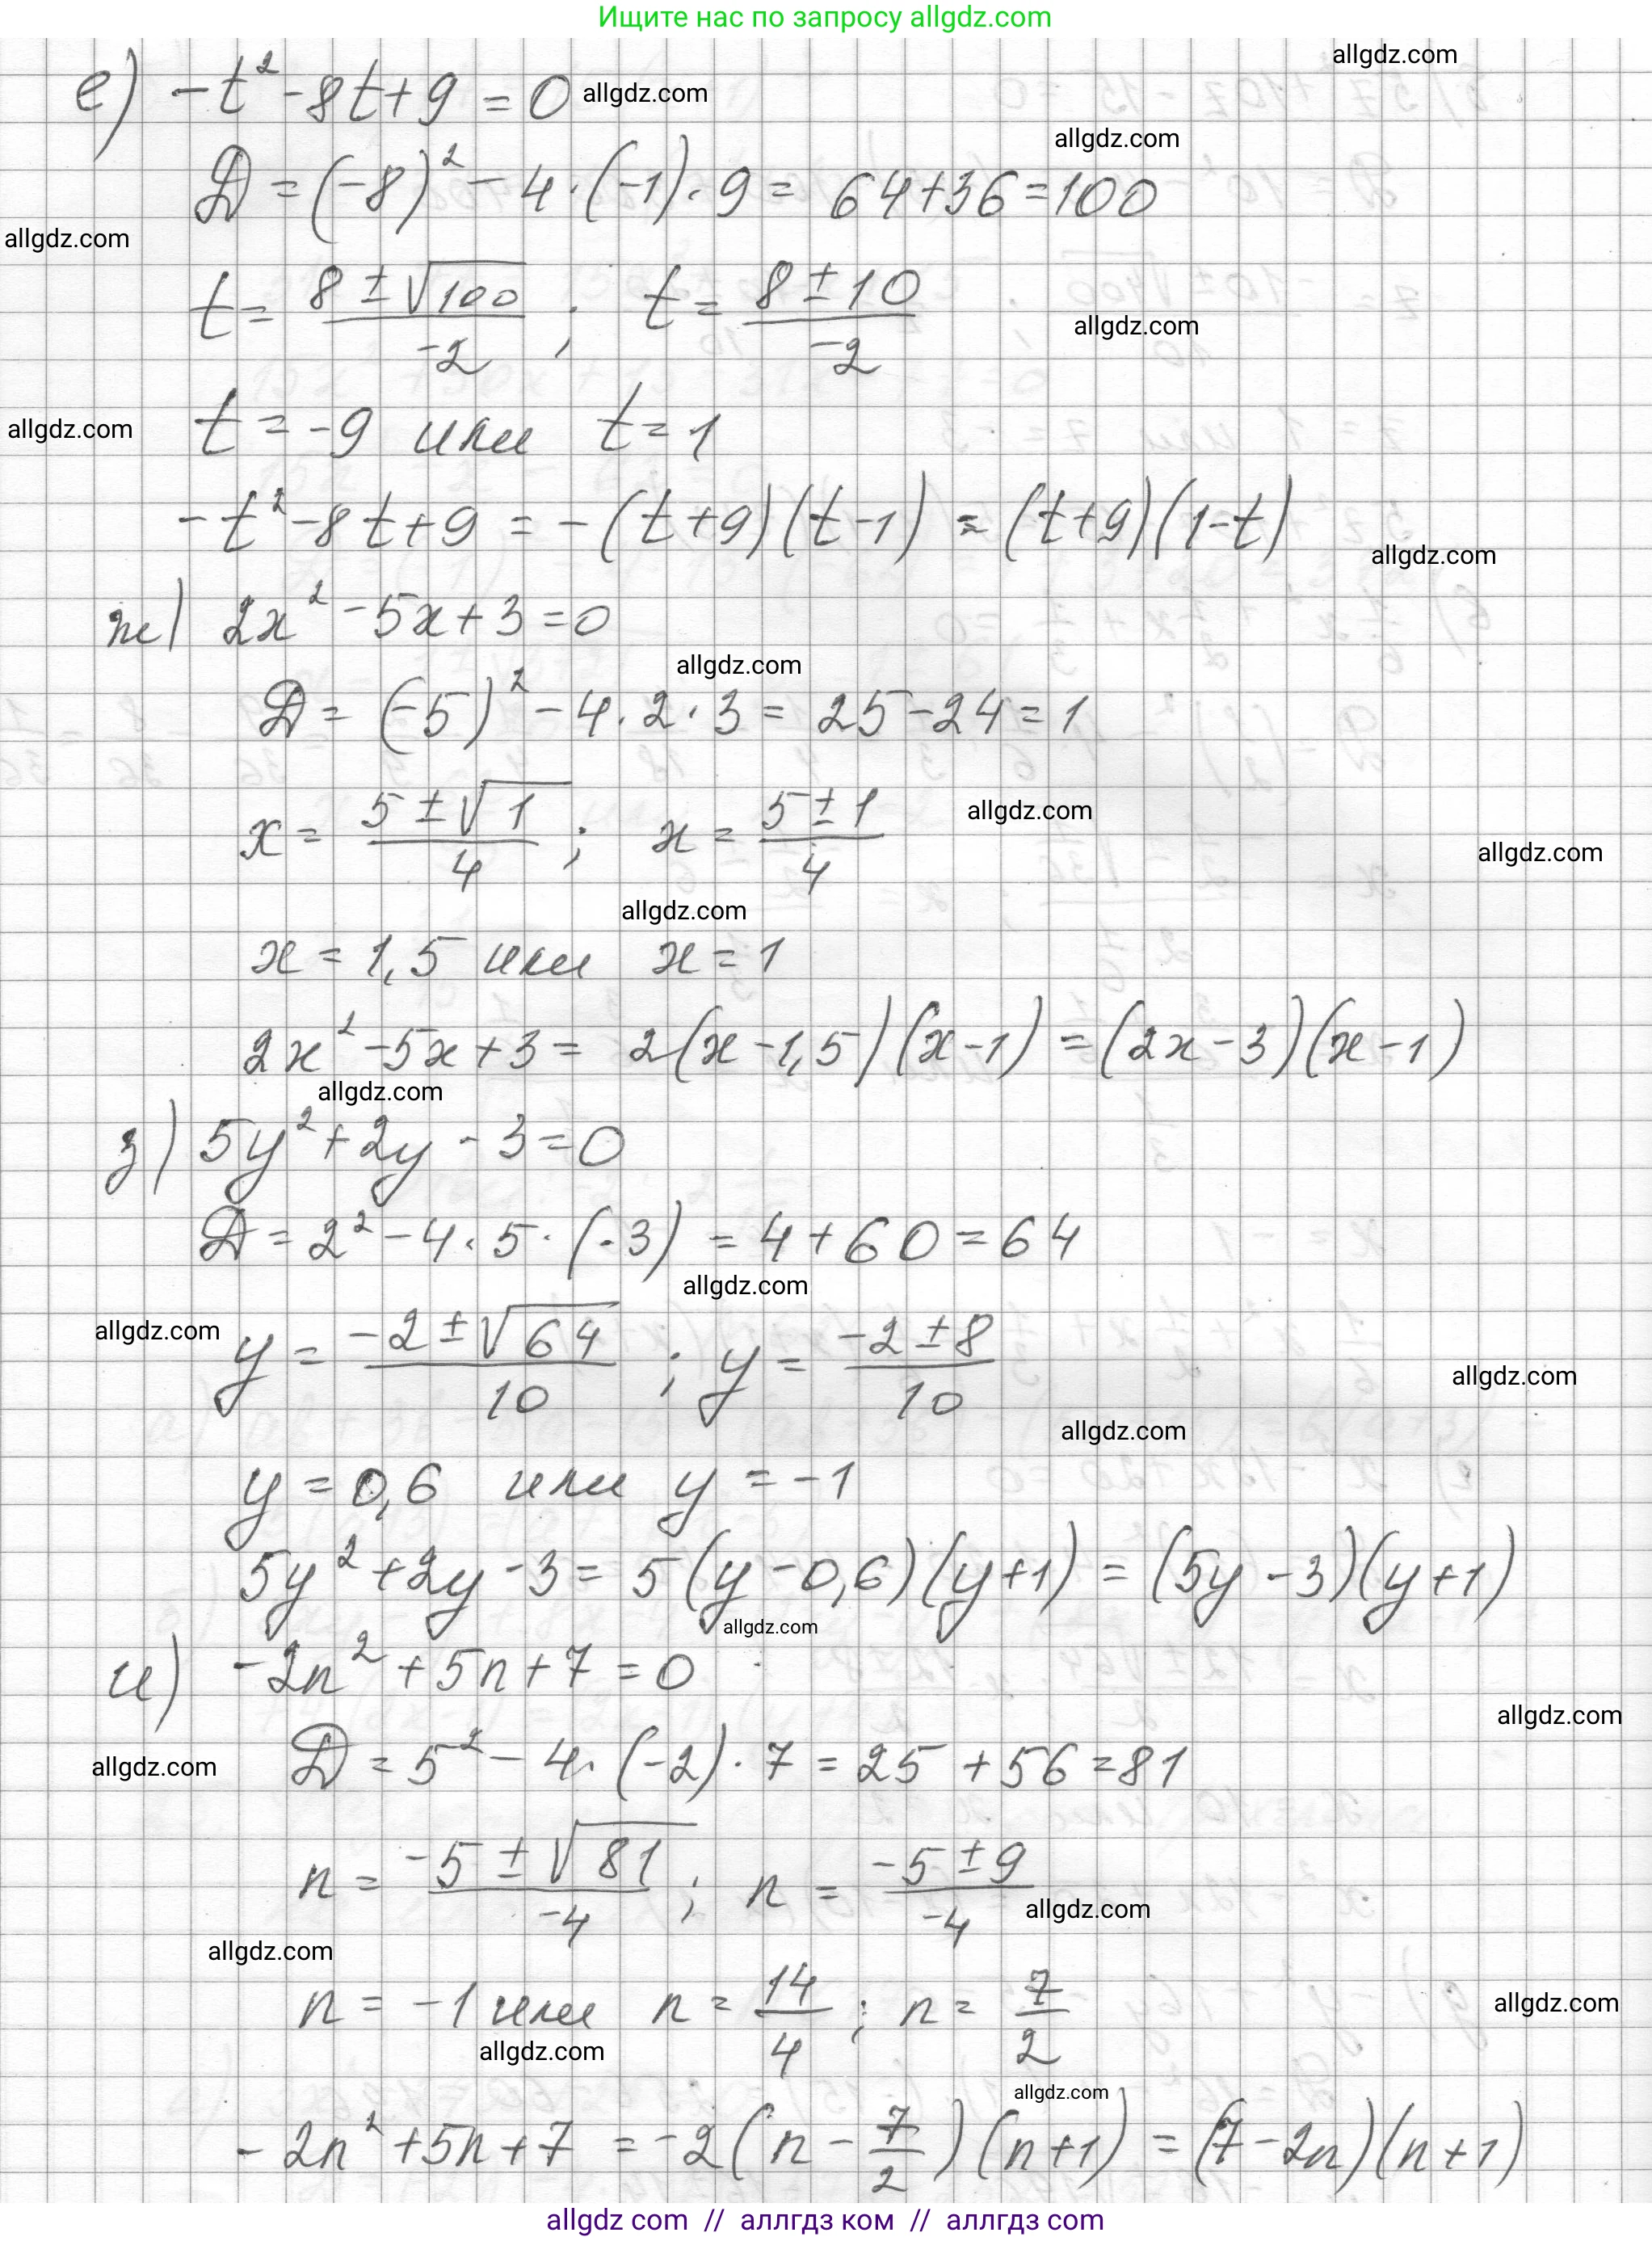 Ищите нас по запросу allgdz.com
allgdz.com
е) -t² - 8t + 9 = 0 allgdz.com
allgdz.com
D = (-8)² - 4·(-1)·9 = 64 + 36 = 100
allgdz.com
t = (8 ± √100)/-2 ; t = (8 ± 10)/-2
allgdz.com
allgdz.com t = -9 или t = 1
-t² - 8t + 9 = -(t+9)(t-1) = (t+9)(1-t)
allgdz.com
ж) 2x² - 5x + 3 = 0
allgdz.com
D = (-5)² - 4·2·3 = 25 - 24 = 1
x = (5 ± √1)/4 ; x = (5 ± 1)/4 allgdz.com
allgdz.com
allgdz.com
x = 1,5 или x = 1
2x² - 5x + 3 = 2(x - 1,5)(x - 1) = (2x - 3)(x - 1)
allgdz.com
з) 5y² + 2y - 3 = 0
D = 2² - 4·5·(-3) = 4 + 60 = 64
allgdz.com
allgdz.com y = (-2 ± √64)/10 ; y = (-2 ± 8)/10
allgdz.com
allgdz.com
y = 0,6 или y = -1
5y² + 2y - 3 = 5(y - 0,6)(y + 1) = (5y - 3)(y + 1)
allgdz.com
и) -2n² + 5n + 7 = 0
allgdz.com
allgdz.com D = 5² - 4·(-2)·7 = 25 + 56 = 81
n = (-5 ± √81)/-4 ; n = (-5 ± 9)/-4 allgdz.com
allgdz.com
n = -1 или n = 14/4 ; n = 7/2 allgdz.com
allgdz.com
allgdz.com
-2n² + 5n + 7 = -2(n - 7/2)(n + 1) = (7 - 2n)(n + 1)
allgdz com // аллгдз ком // allgdz com